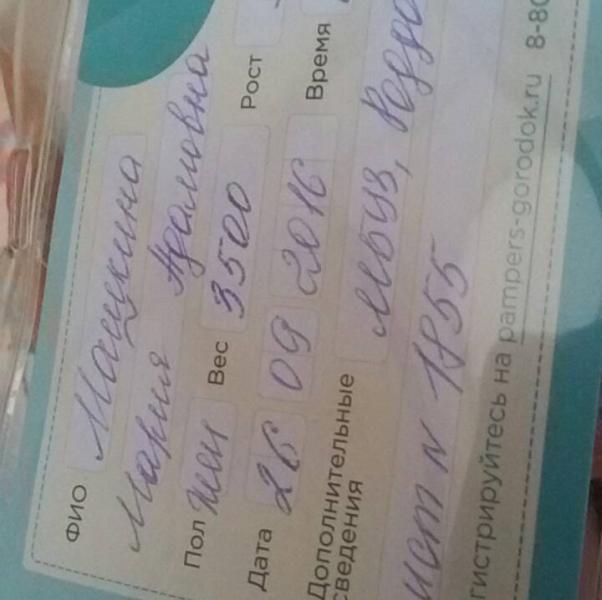 ФИО Мащекина
Мария Адамовна
Пол жен Вес 3500 Рост
Дата 26 09 2016 Время
Дополнительные сведения МБУЗ,
ист N 1855
гистрируйтесь на pampers-gorodok.ru 8-80